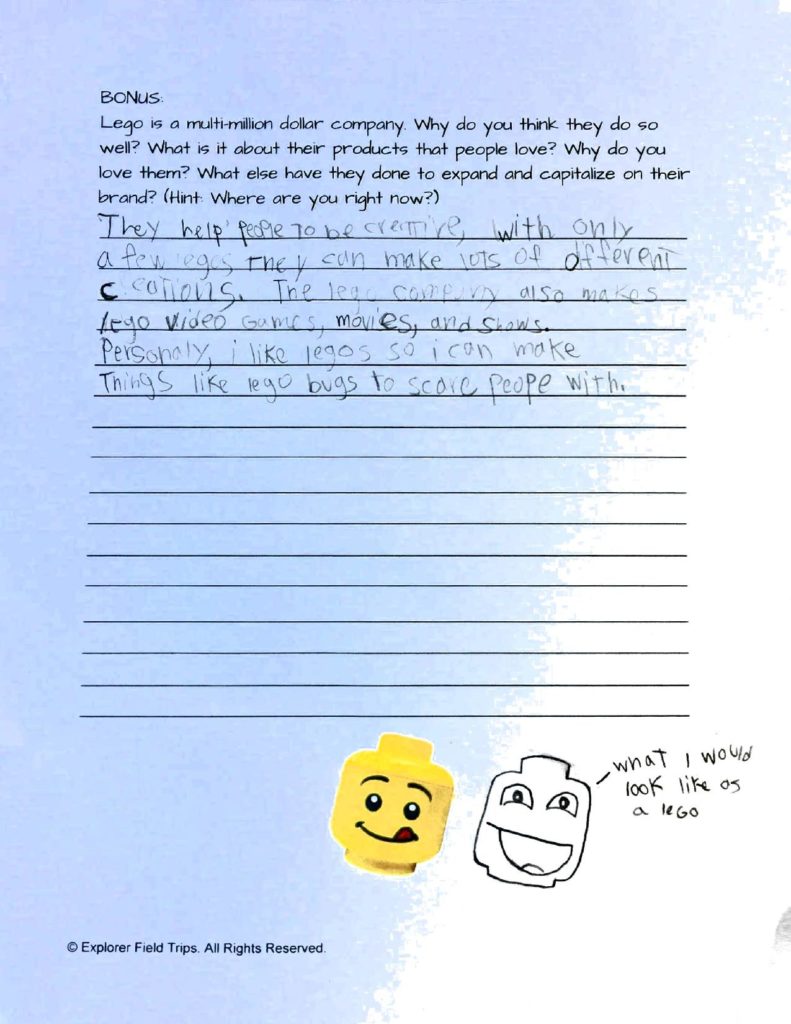 BONUS:
Lego is a multi-million dollar company. Why do you think they do so
well? What is it about their products that people love? Why do you
love them? What else have they done to expand and capitalize on their
brand? (Hint: Where are you right now?)
They help people to be creative, with only
a few legos they can make lots of different
c eations. The lego company also makes
lego video games, movies, and shows.
Personaly, i like legos so i can make
Things like lego bugs to scare peope with.
what I would
look like as
a lego
© Explorer Field Trips. All Rights Reserved.